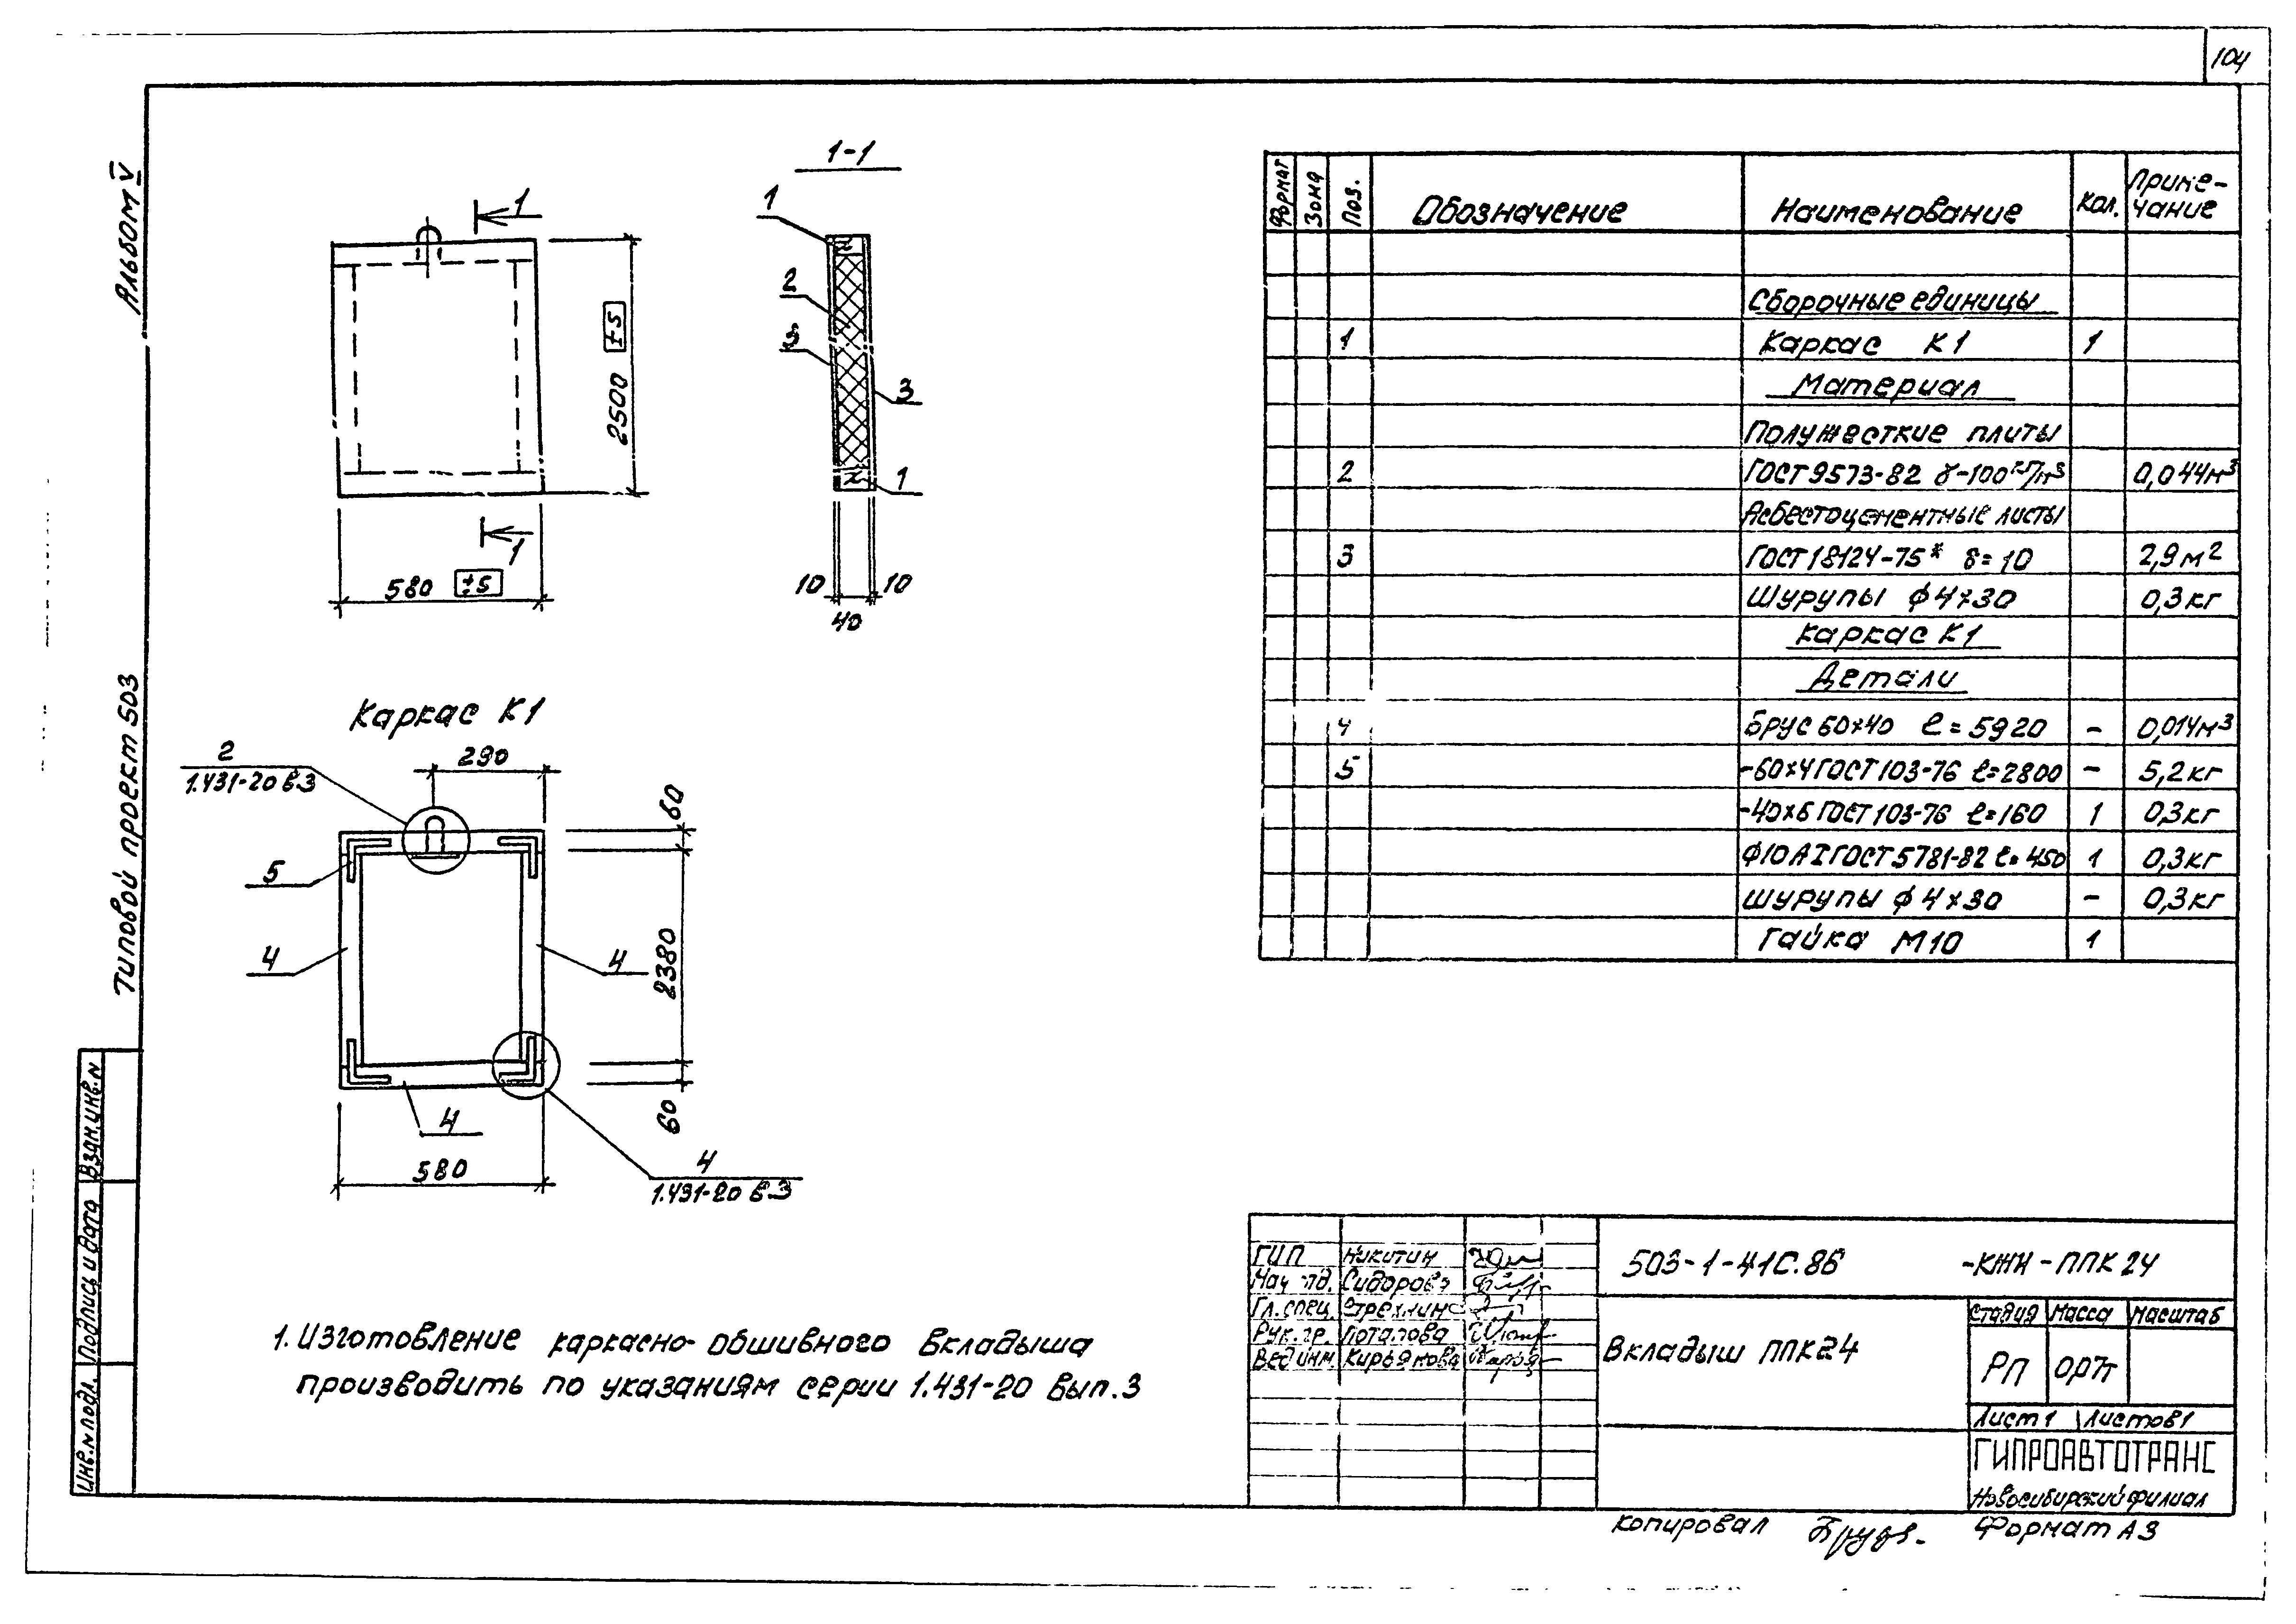 104
Альбом V
Типовой проект 503
Взам.инв.№
Подпись и дата
Инв.№ подл.
1
1
2500 ±5
580 ±5
1-1
1
2
3
3
1
10
40
10
Каркас К1
2
1.431-20 в.3
290
60
5
4
4
2380
60
4
580
4
1.431-20 в.3
Формат Зона Поз. Обозначение Наименование Кол. Примечание
Сборочные единицы
1 Каркас К1 1
Материал
Полужесткие плиты
2 ГОСТ 9573-82 γ-100кг/м3 0,044м3
Асбестоцементные листы
3 ГОСТ 18124-75* δ=10 2,9м2
Шурупы ф4×30 0,3кг
Каркас К1
Детали
4 Брус 60×40 ℓ=5920 - 0,014м3
5 -60×4 ГОСТ 103-76 ℓ=2800 - 5,2кг
-40×6 ГОСТ 103-76 ℓ=160 1 0,3кг
ф10АI ГОСТ 5781-82 ℓ=450 1 0,3кг
Шурупы ф4×30 - 0,3кг
Гайка М10 1
1. Изготовление каркасно-обшивного вкладыша
производить по указаниям серии 1.431-20 вып.3
ГИП Никитин
Нач. отд. Сидорова
Гл.спец. Стрехнин
Рук.гр. Потапова
Вед инж. Кирьянова
503-1-41С.86 -КЖИ-ППК24
Вкладыш ППК24
Стадия Масса Масштаб
РП
Лист 1 Листов 1
ГИПРОАВТОТРАНС
Новосибирский филиал
Копировал
Формат А3